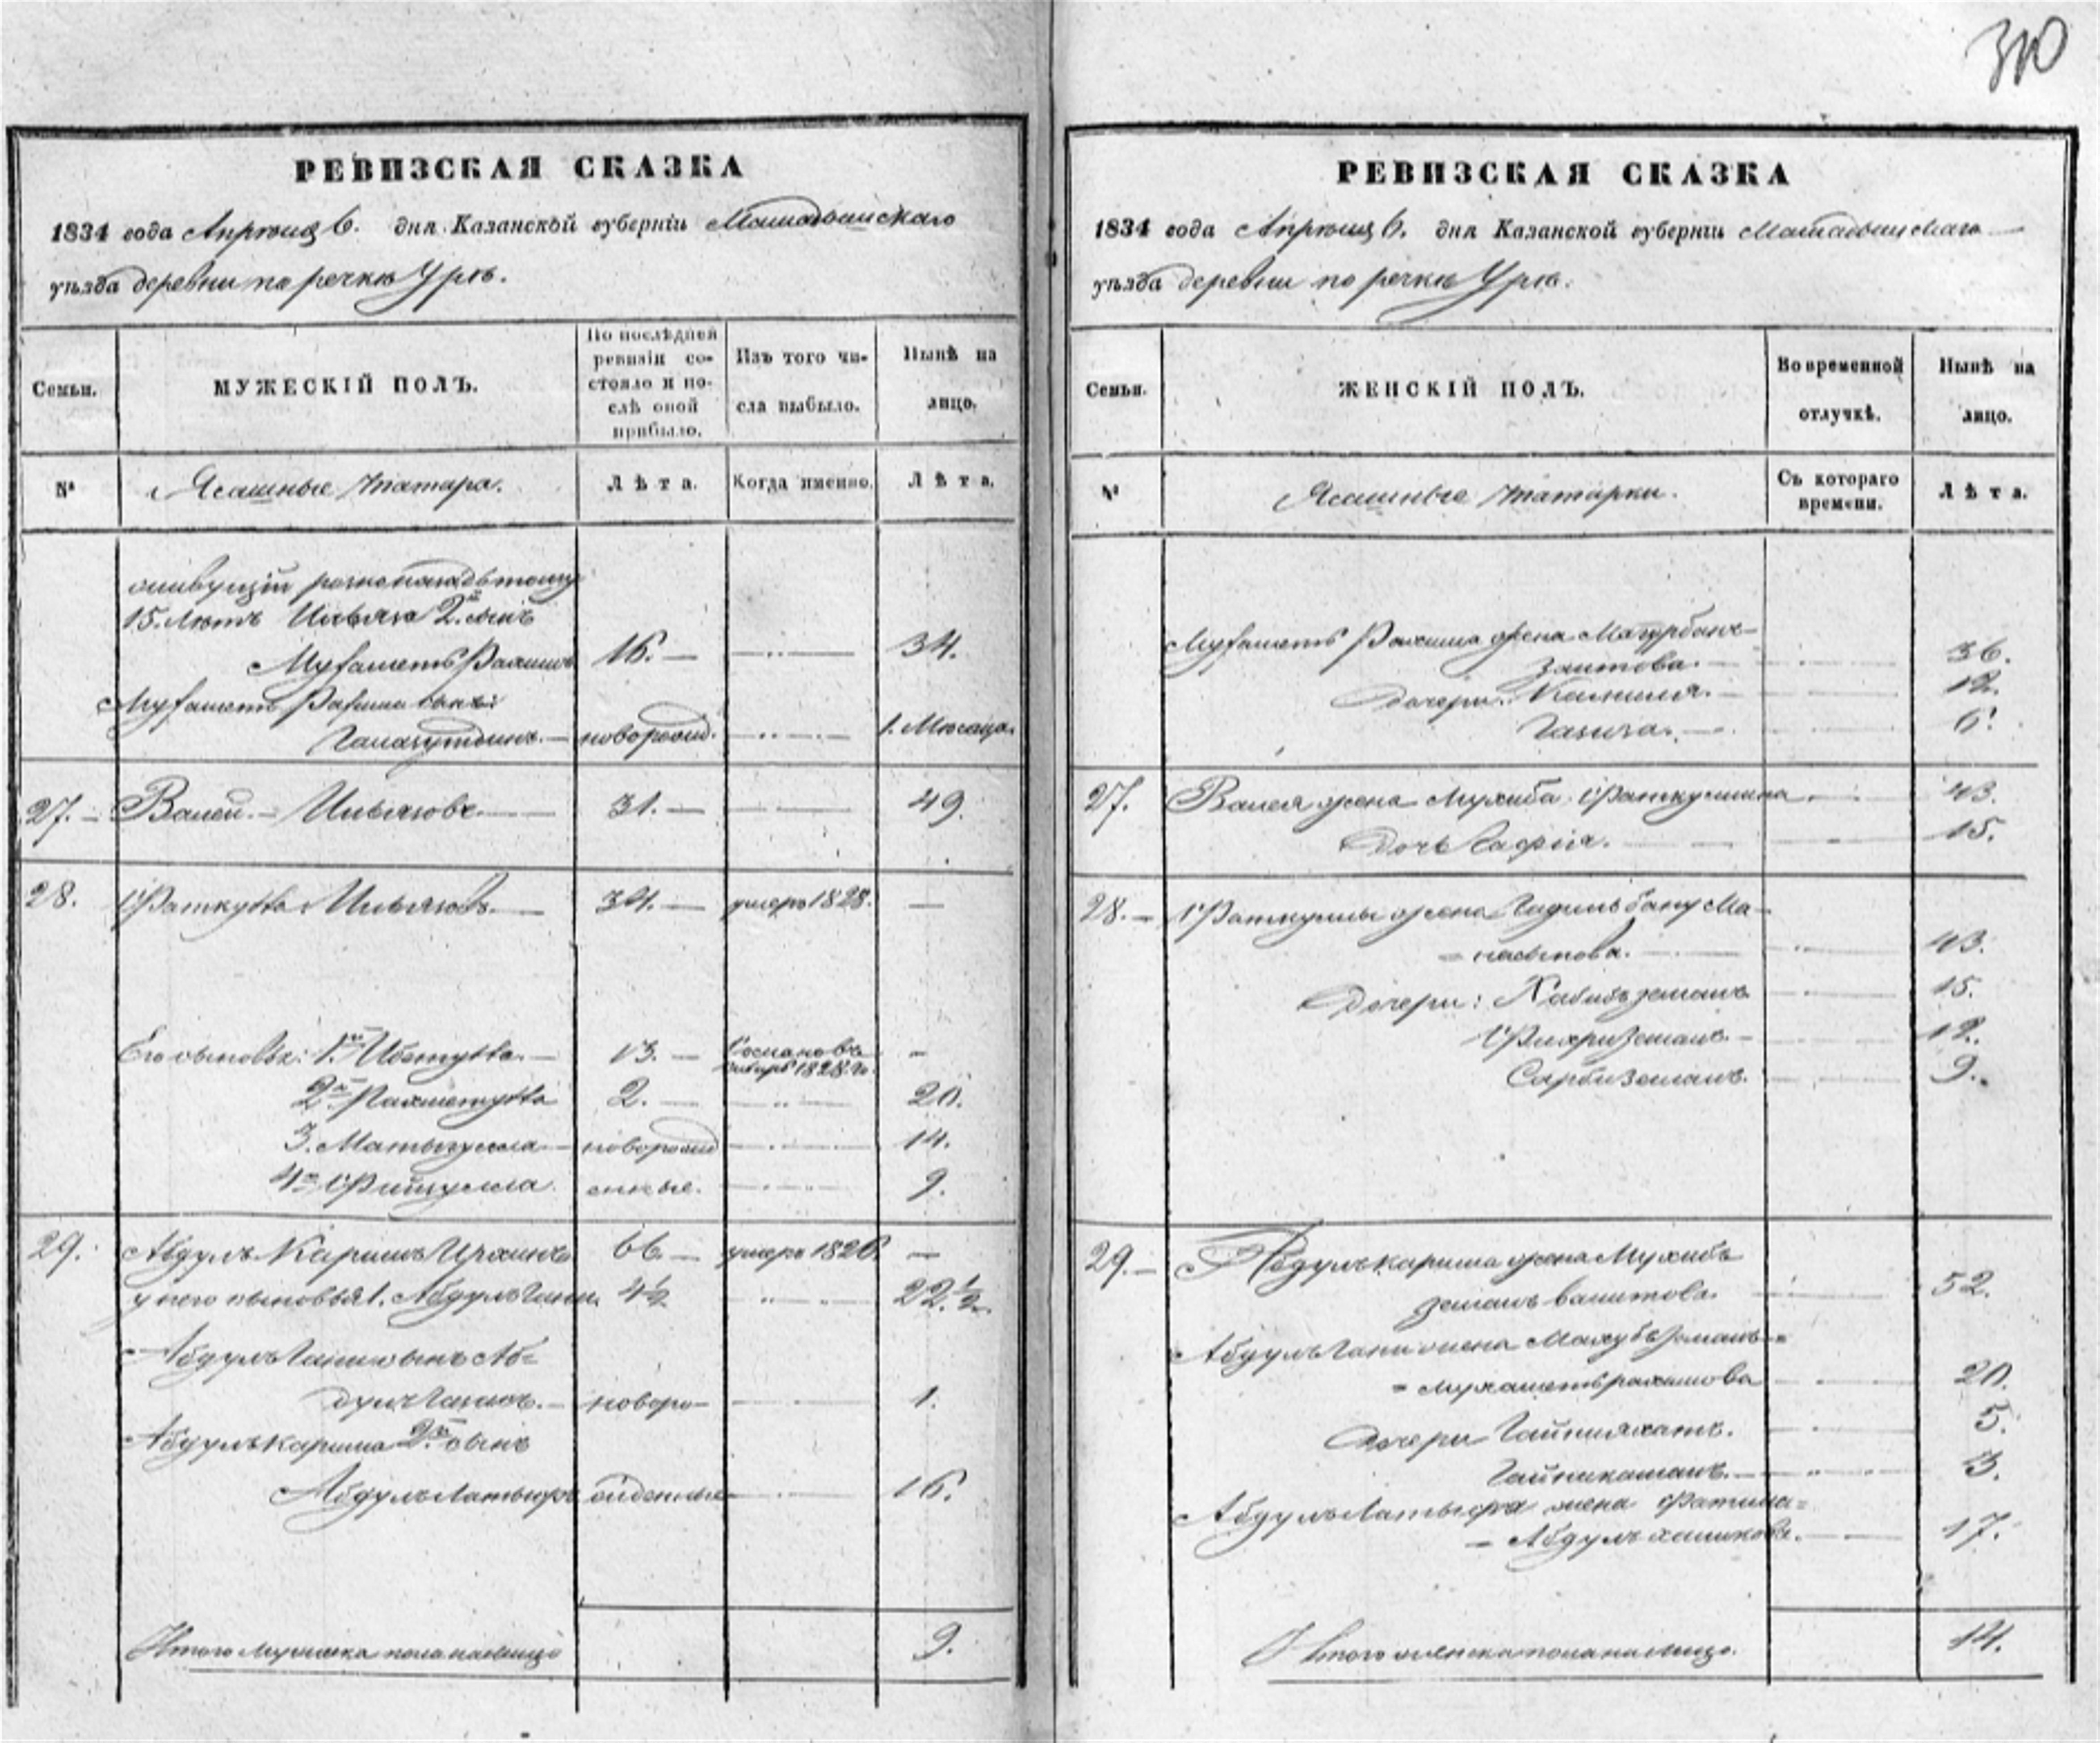 310
РЕВИЗСКАЯ СКАЗКА
1834 года Апреля 6. дня Казанской губерніи Мамадышскаго
уѣзда деревни по речкѣ Урѣ.
Семьи.
МУЖЕСКІЙ ПОЛЪ.
По послѣдней ревизіи состояло и послѣ оной прибыло.
Изъ того числа выбыло.
Нынѣ на лицо.
№
Ясашные татара.
Лѣта.
Когда именно.
Лѣта.
15. лѣтъ Ильяса 2й сынъ
Мухаметъ Рахимъ 16. — 34.
Мухаметъ Рахима сынъ:
новорожд. 1. Месяца.
27. Валей Ильясовъ 31. — 49.
28. Фаткулла Ильясовъ 34. — умеръ 1828. —
Его сыновья: 1й Ибетулла 13. — 1828 го. —
2й Рахметулла 2. — 20.
3. Матыгулла новорожд 14.
4й Фейзулла енные. 9.
29. Абдулъ Каримъ 66. — умеръ 1826. —
у него сыновья 1. Абдулъ Гани 4½ 22.½
Абдулъ Гани сынъ Аб=
новоро- 1.
Абдулъ Карима 2й сынъ
Абдулъ Латыфъ жденные 16.
Итого мужеска пола на лицо 9.
РЕВИЗСКАЯ СКАЗКА
1834 года Апреля 6. дня Казанской губерніи Мамадышскаго
уѣзда деревни по речкѣ Урѣ.
Семьи.
ЖЕНСКІЙ ПОЛЪ.
Во временной отлучкѣ.
Нынѣ на лицо.
№
Ясашные татарки.
Съ котораго времени.
Лѣта.
Мухаметъ Рахима жена
Заитова. 36.
дочери: Камиля. 12.
6.
27. Валея жена Мухиба Фаткуллина 43.
дочь Сафія. 15.
28. — Фаткуллы жена Бану Ма-
43.
Дочери: Хабибземалъ 15.
12.
Сарбиземалъ. 9.
29. — Абдулъ Карима жена Мухибъ
земалъ Валитова. 52.
Абдулъ Гани жена земалъ =
= Мухаметърахимова 20.
дочери 5.
3.
Абдулъ Латыфа жена Фатима =
= Абдулъ 17.
Итого женска пола на лицо. 14.